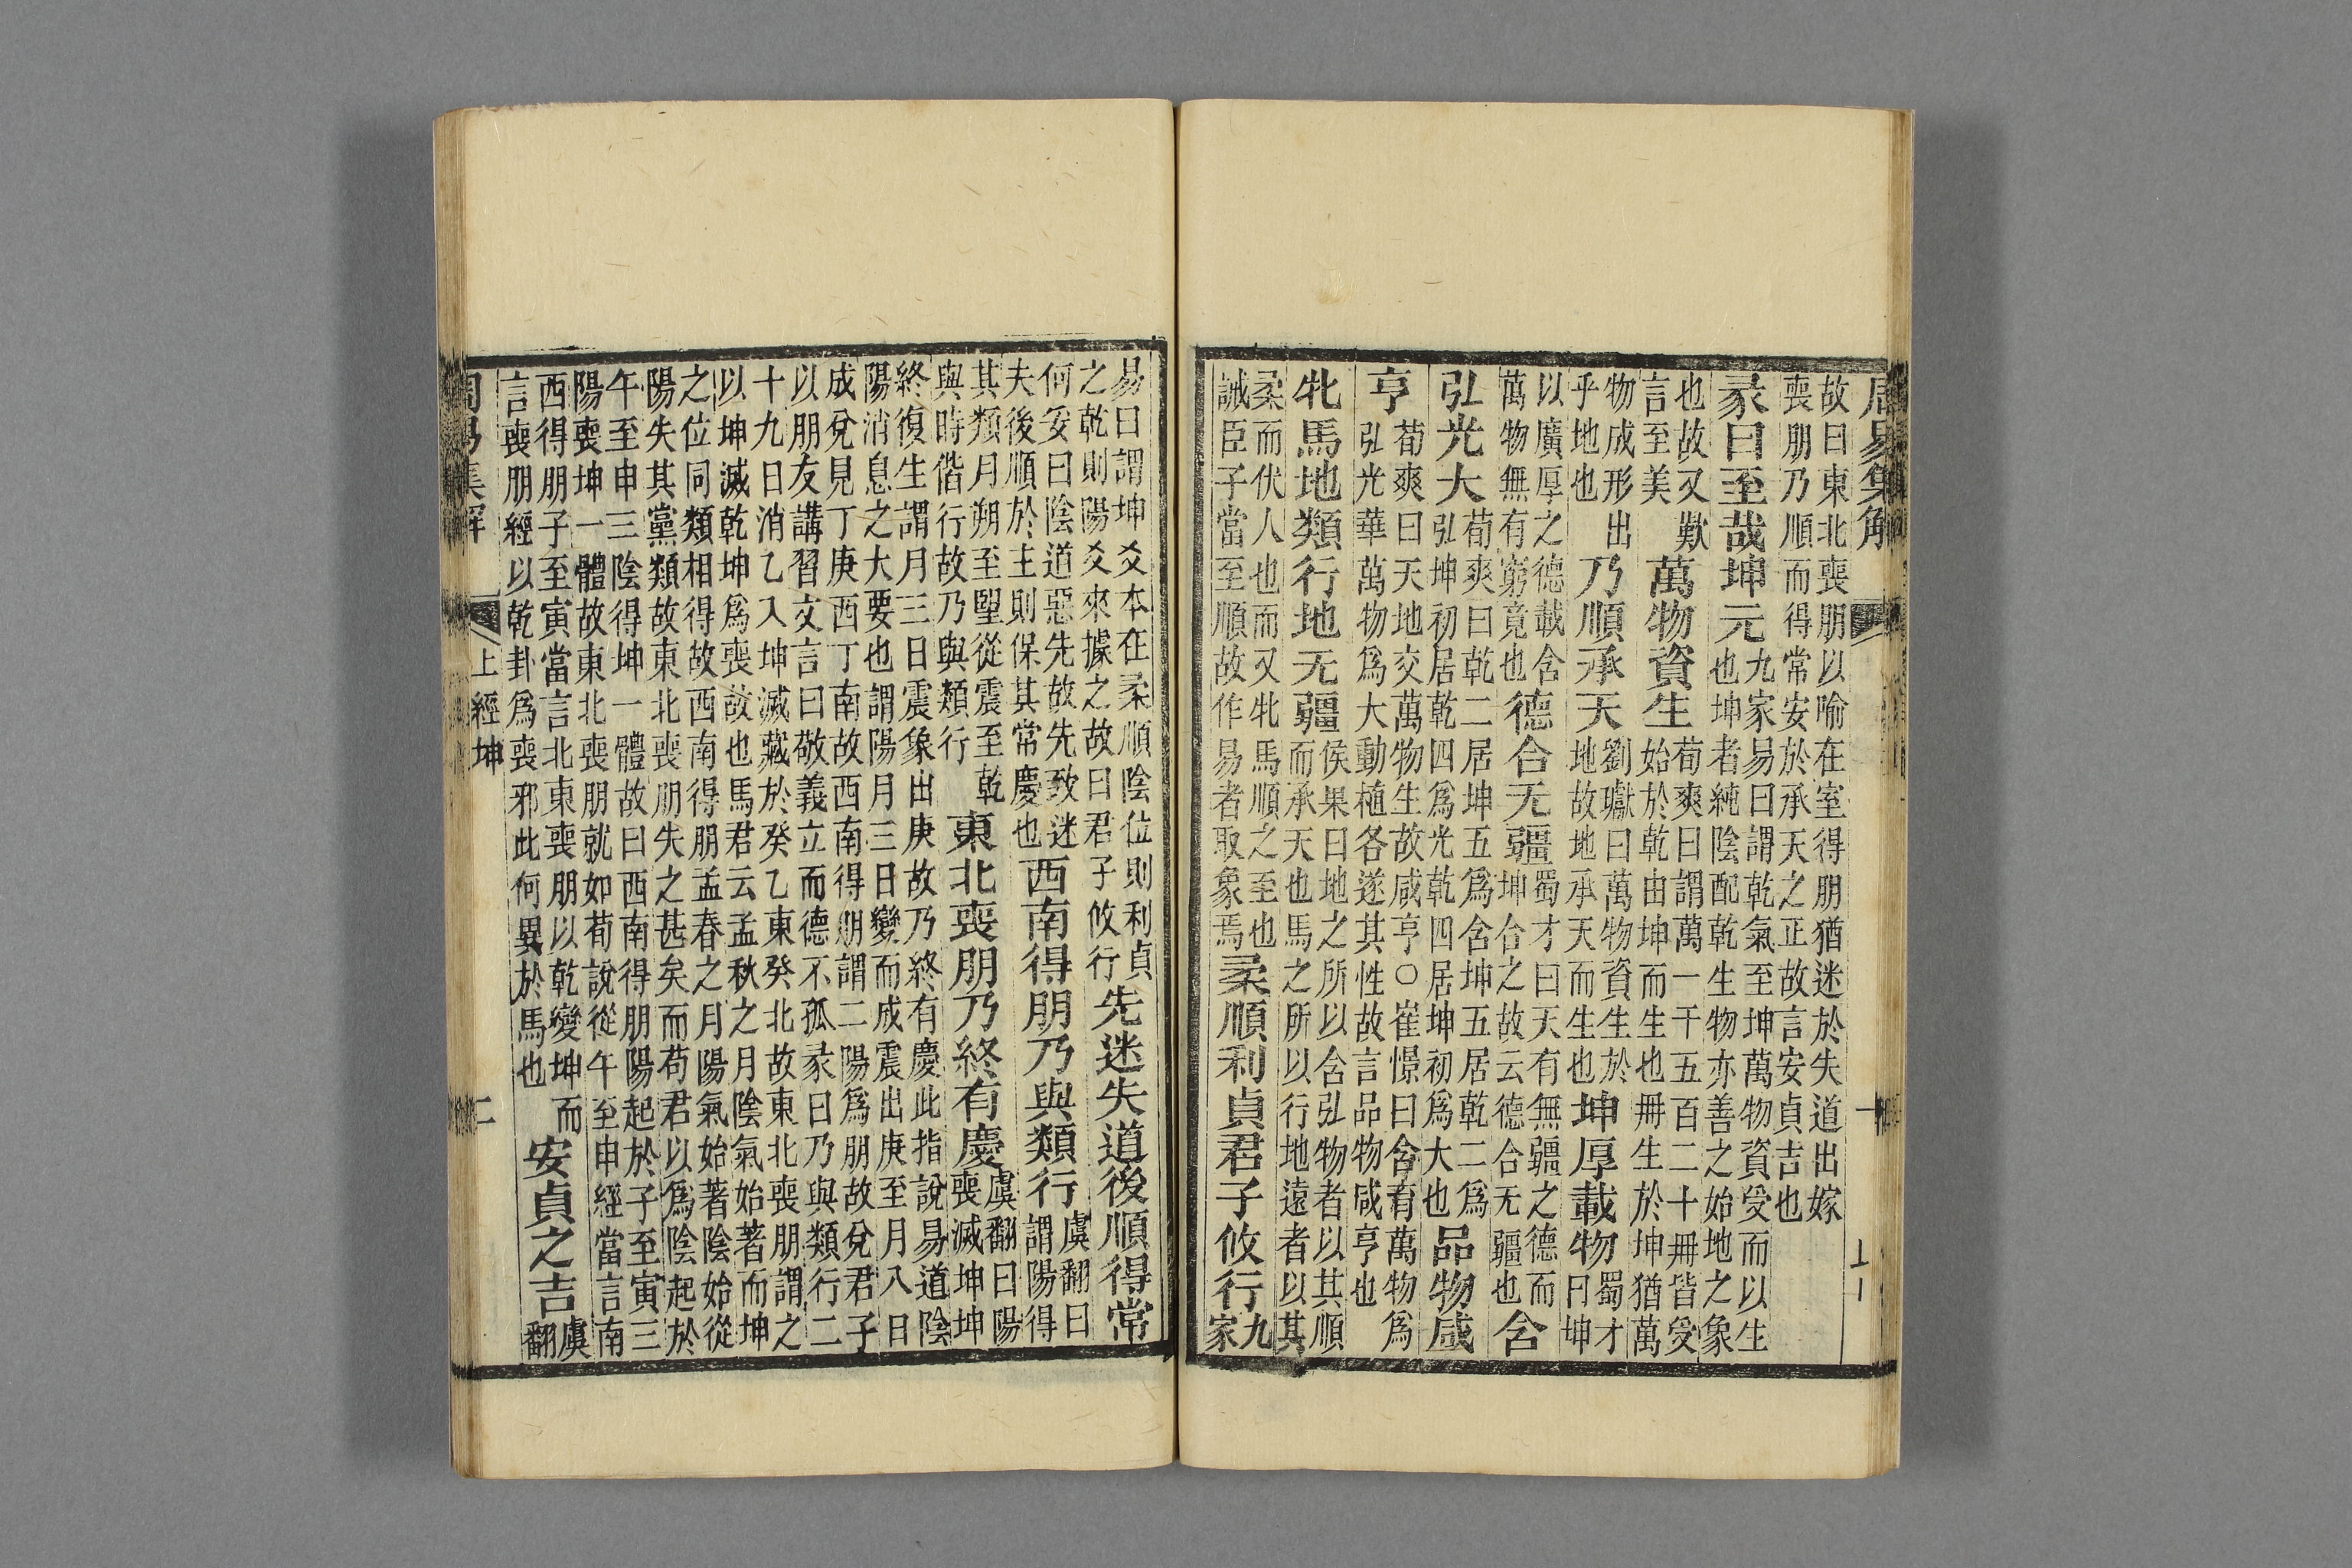 周易集解
故曰東北喪朋以喻在室得朋猶迷於失道出嫁
喪朋乃順而得常安於承天之正故言安貞吉也
彖曰至哉坤元
九家易曰謂乾氣至坤萬物資受而以生
也坤者純陰配乾生物亦善之始地之象
也故又歎
言至美
萬物資生
荀爽曰謂萬一千五百二十冊皆受
始於乾由坤而生也冊生於坤猶萬
物成形出
乎地也
乃順承天
劉瓛曰萬物資生於
地故地承天而生也
坤厚載物
蜀才
曰坤
以廣厚之德載含
萬物無有窮竟也
德合无疆
蜀才曰天有無疆之德而
坤合之故云德合无疆也
含
弘光大
荀爽曰乾二居坤五爲含坤五居乾二爲
弘坤初居乾四爲光乾四居坤初爲大也
品物咸
亨
荀爽曰天地交萬物生故咸亨○崔憬曰含育萬物爲
弘光華萬物爲大動植各遂其性故言品物咸亨也
牝馬地類行地无疆
侯果曰地之所以含弘物者以其順
而承天也馬之所以行地遠者以其
柔而伏人也而又牝馬順之至也
誡臣子當至順故作易者取象焉
柔順利貞君子攸行
九
家
易曰謂坤爻本在柔順陰位則利貞
之乾則陽爻來據之故曰君子攸行
先迷失道後順得常
何妥曰陰道惡先故先致迷
夫後順於主則保其常慶也
西南得朋乃與類行
虞翻曰
謂陽得
其類月朔至朢從震至乾
與時偕行故乃與類行
東北喪朋乃終有慶
虞翻曰陽
喪滅坤坤
終復生謂月三日震象出庚故乃終有慶此指說易道陰
陽消息之大要也謂陽月三日變而成震出庚至月八日
成兌見丁庚西丁南故西南得朋謂二陽爲朋故兌君子
以朋友講習文言曰敬義立而德不孤彖曰乃與類行二
十九日消乙入坤滅藏於癸乙東癸北故東北喪朋謂之
以坤滅乾坤爲喪故也馬君云孟秋之月陰氣始著而坤
之位同類相得故西南得朋孟春之月陽氣始著陰始從
陽失其黨類故東北喪朋失之甚矣而荀君以爲陰起於
午至申三陰得坤一體故曰西南得朋陽起於子至寅三
陽喪坤一體故東北喪朋就如荀說從午至申經當言南
西得朋子至寅當言北東喪朋以乾變坤而
言喪朋經以乾卦爲喪邪此何異於馬也
安貞之吉
虞
翻
周易集解
上經坤
二